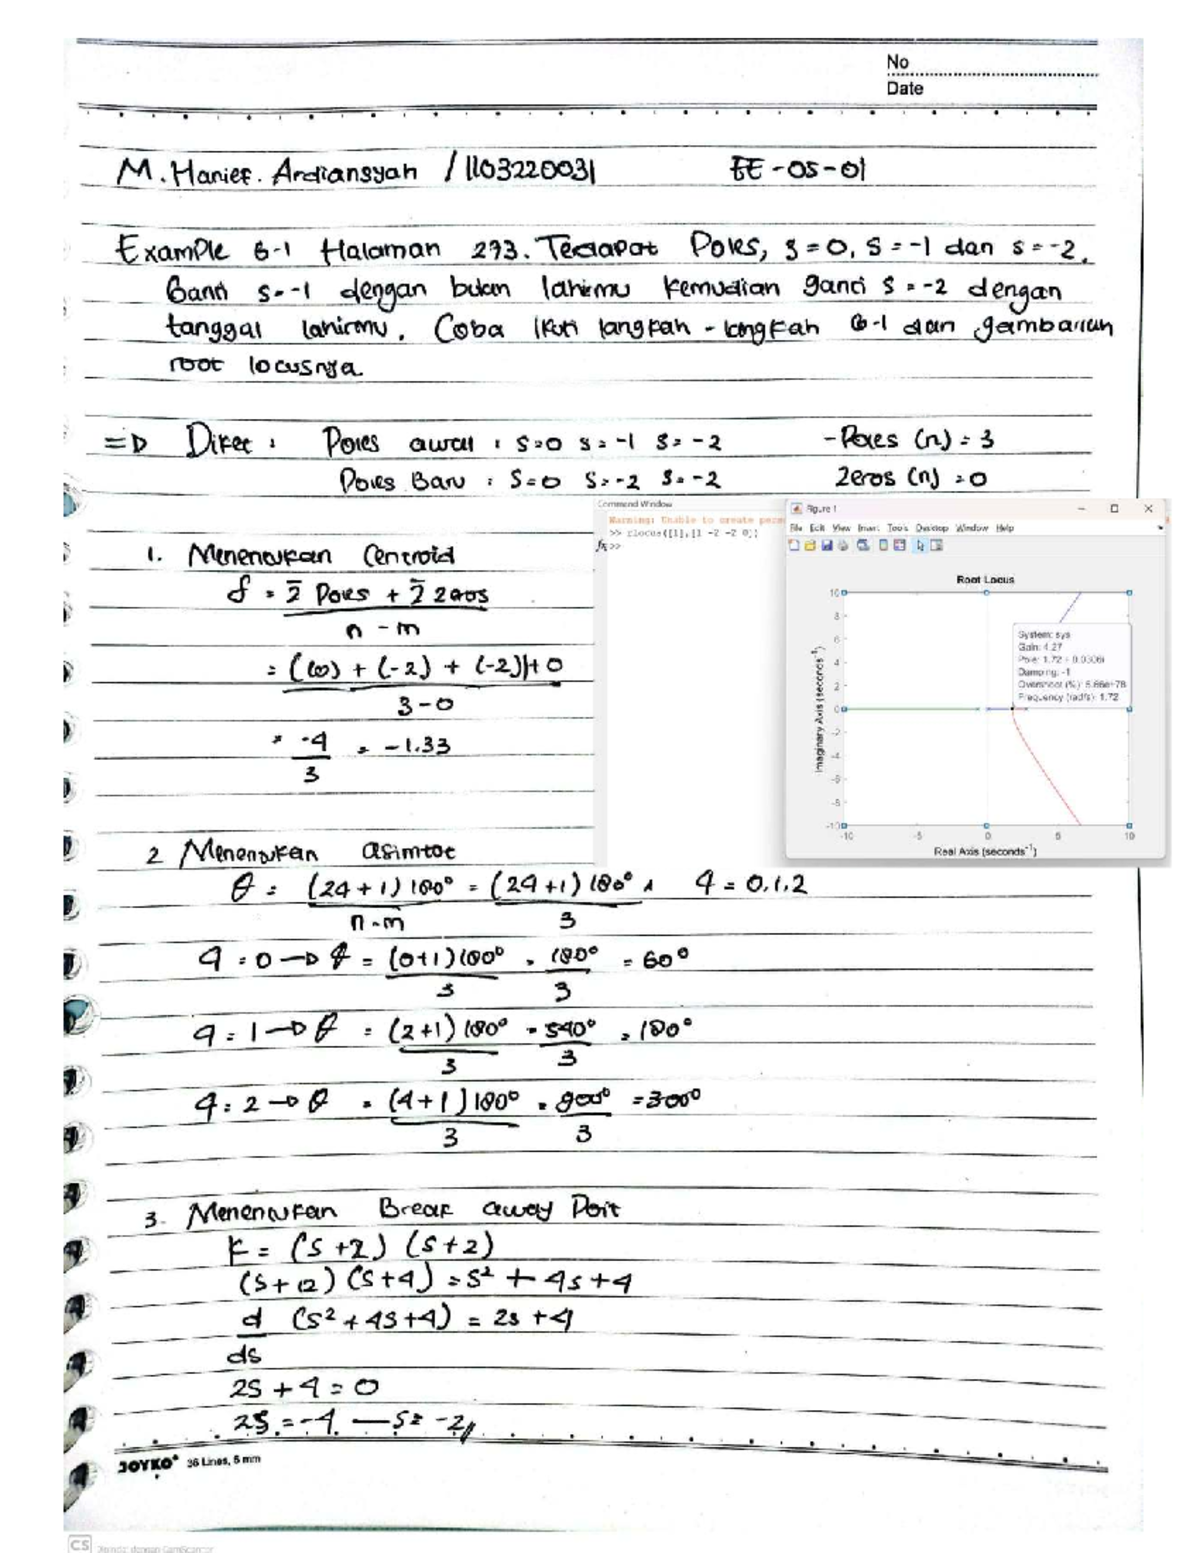 No
Date
M. Hanief. Ardiansyah / 1103220031 EE-05-01
Example 6-1 Halaman 273. Terdapat Poles, s=0, s=-1 dan s=-2.
Ganti s=-1 dengan bulan lahirmu kemudian ganti s=-2 dengan
tanggal lahirmu. Coba ikuti langkah-langkah 6-1 dan gambarlah
root locusnya
=D Diket : Poles awal : s=0 s=-1 s=-2 -Poles (n) = 3
Poles Baru : s=0 s=-2 s=-2 Zeros (n) = 0
1. Menentukan Centroid
= Σ Poles + Σ zeros
n - m
= ((0) + (-2) + (-2)) + 0
3-0
= -4 = -1.33
3
Command Window
Warning: Unable to create
>> rlocus([1],[1 -2 -2 0])
fx >>
Figure 1
File Edit View Insert Tools Desktop Window Help
Root Locus
System: sys
Gain: 4.27
Pole: 1.72 + 0.0306i
Damping: -1
Overshoot (%): 5.66e+78
Frequency (rad/s): 1.72
10
8
6
4
2
0
-2
-4
-6
-8
-10
-10 -5 0 5 10
Imaginary Axis (seconds⁻¹)
Real Axis (seconds⁻¹)
2 Menentukan asimtot
θ = (2q+1)180° = (2q+1)180° , q = 0,1,2
n-m 3
q = 0 → θ = (0+1)180° = 180° = 60°
3 3
q = 1 → θ = (2+1)180° = 540° = 180°
3 3
q = 2 → θ = (4+1)180° = 900° = 300°
3 3
3. Menentukan Break away Poit
K = (s+2) (s+2)
(s+12) (s+4) = s² + 4s + 4
d (s² + 4s + 4) = 2s + 4
ds
2s + 4 = 0
2s = -4 — s = -2
JOYKO 36 Lines, 6 mm
CS